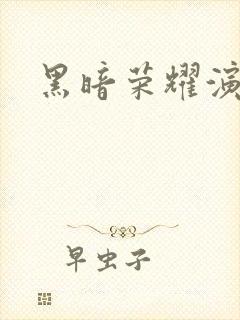 黑暗荣耀演
早虫子